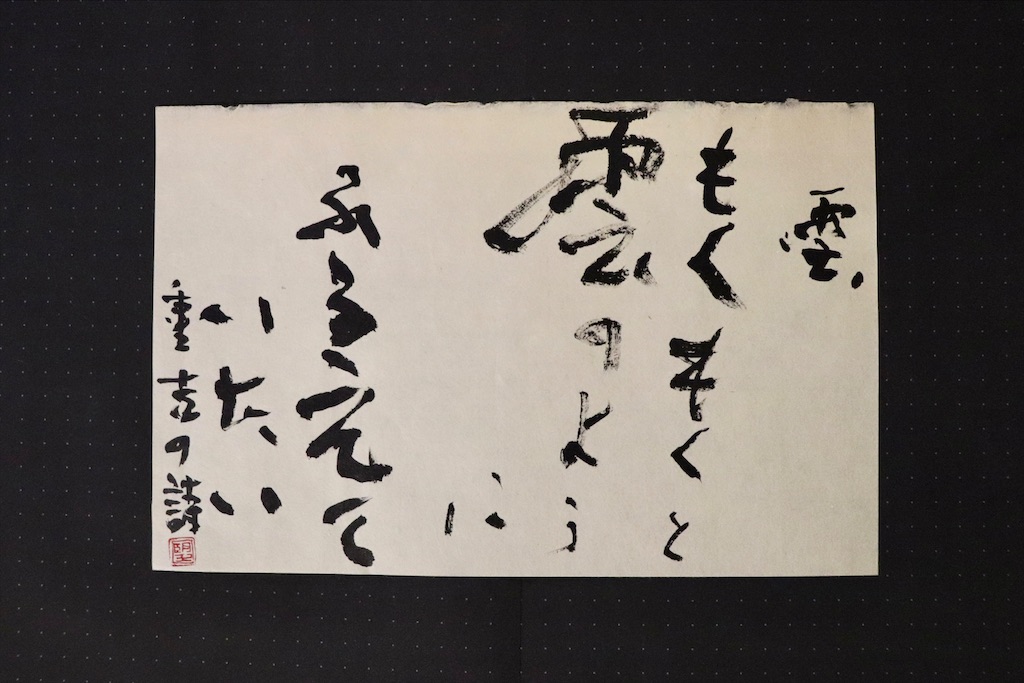 雲
もくもくと
雲のよう
に
ふるえて
いたい
重吉の詩